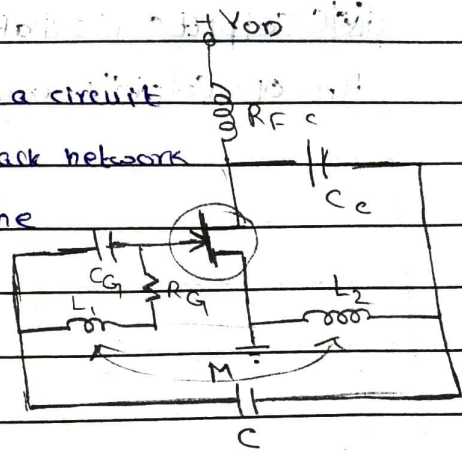 +VDD
a circuit
RFC
ack network
Cc
ne
CG
RG
L1
L2
M
C